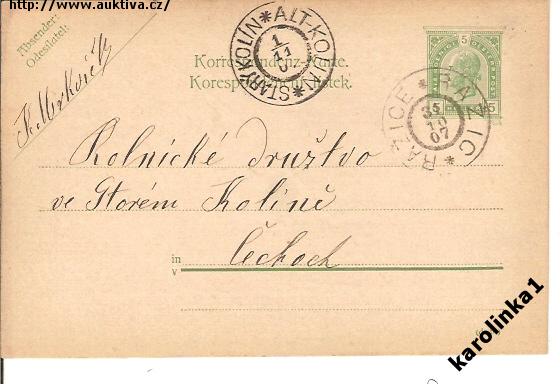 http://www.auktiva.cz/
Absender:
Odesílatel:
STARÝ KOLÍN * ALT-KOLIN *
1
11
07
Korrespondenz-Karte.
Korespondenční lístek.
5
5 5
RAŽICE * RAŽIC *
31
10
07
Rolnické družstvo
ve Starém Kolíně
in
v
Čechach
karolinka1